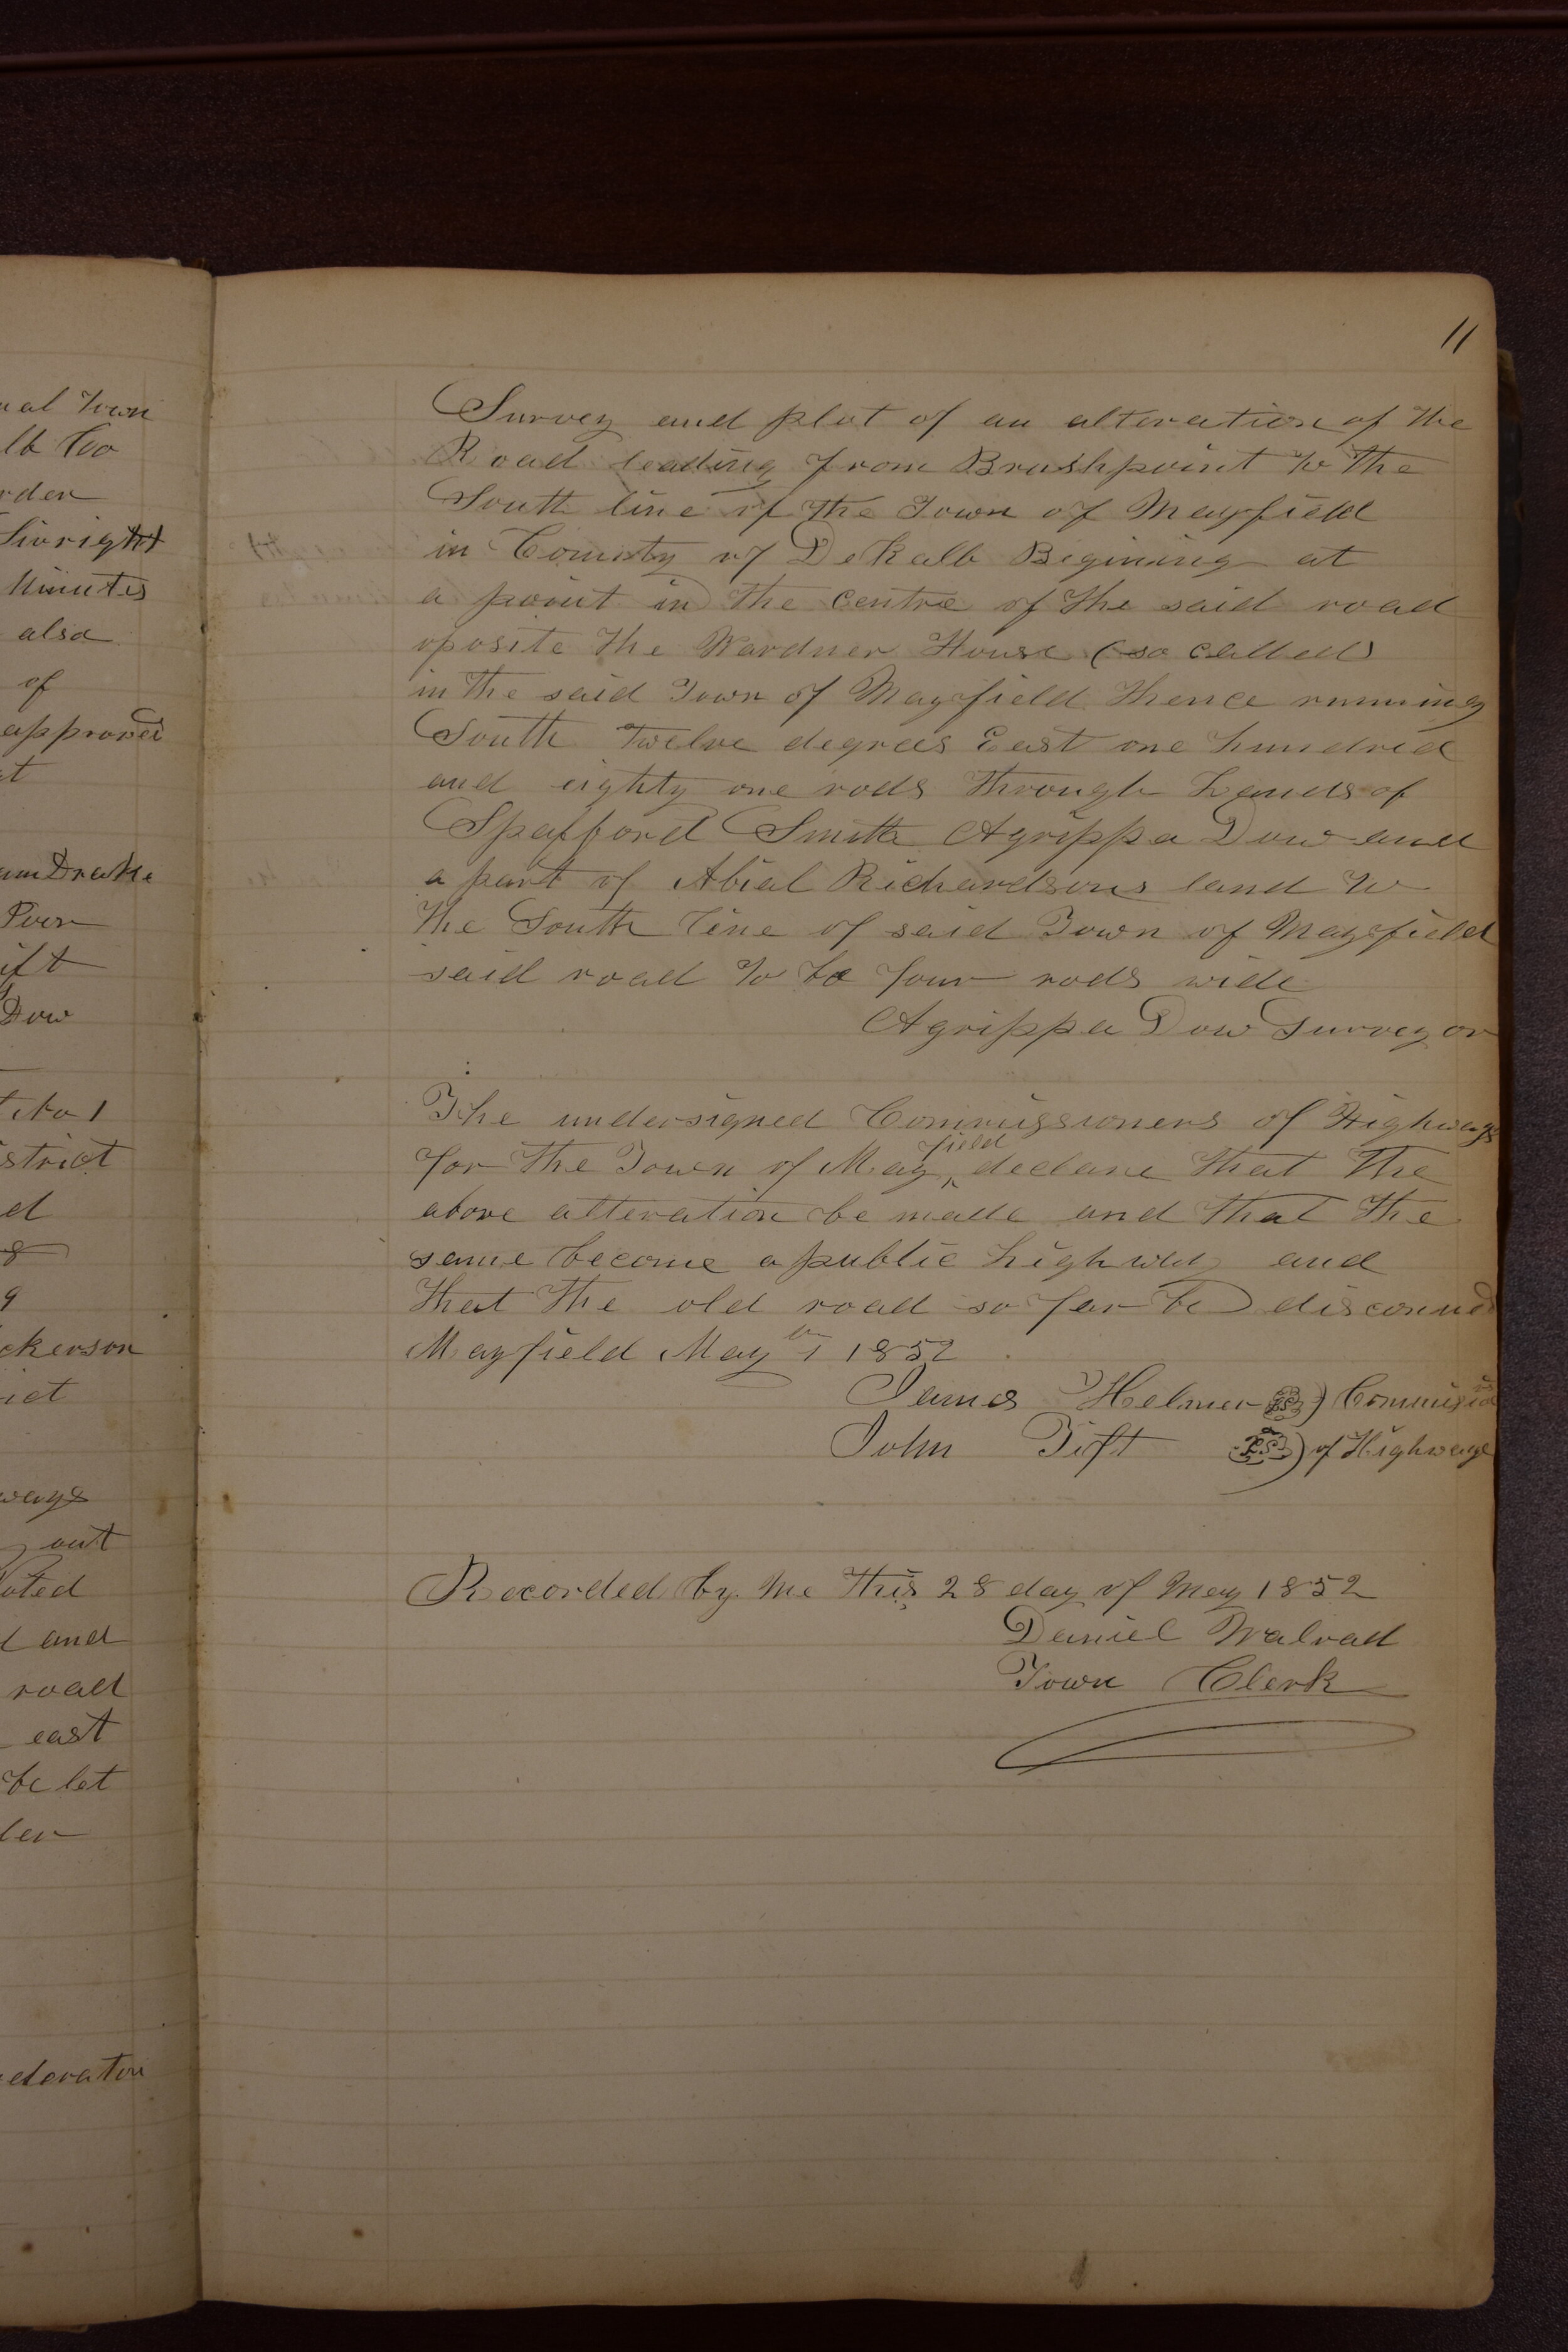 11
Survey and plat of an alteration of the
Road leading from Brushpoint to the
South line of the Town of Mayfield
in County of DeKalb Begining at
a point in the centre of the said road
oposite the Wardner House (so called)
in the said Town of Mayfield thence running
South twelve degrees East one hundred
and eighty one rods through Lands of
Spafford Smith Agrippa Dow and
a part of Abial Richardsons land to
the South line of said Town of Mayfield
said road to be four rods wide
Agrippa Dow Surveyor
The undersigned Commissioners of Highways
for the Town of Mayfield declare that the
above alteration be made and that the
same become a public highway and
that the old road so far be
Mayfield May 1 1852
James Helmer LS)
John Tift LS) of Highways
Recorded by me this 28 day of May 1852
Daniel Walrad
Town Clerk
al Town
lb Coo
rder
Minutes
also
of
approved
t
Drake
Poor
ift
Dow
No 1
strict
d
8
9
ckerson
ict
ways
out
oted
and
road
east
be let
ler
oderator